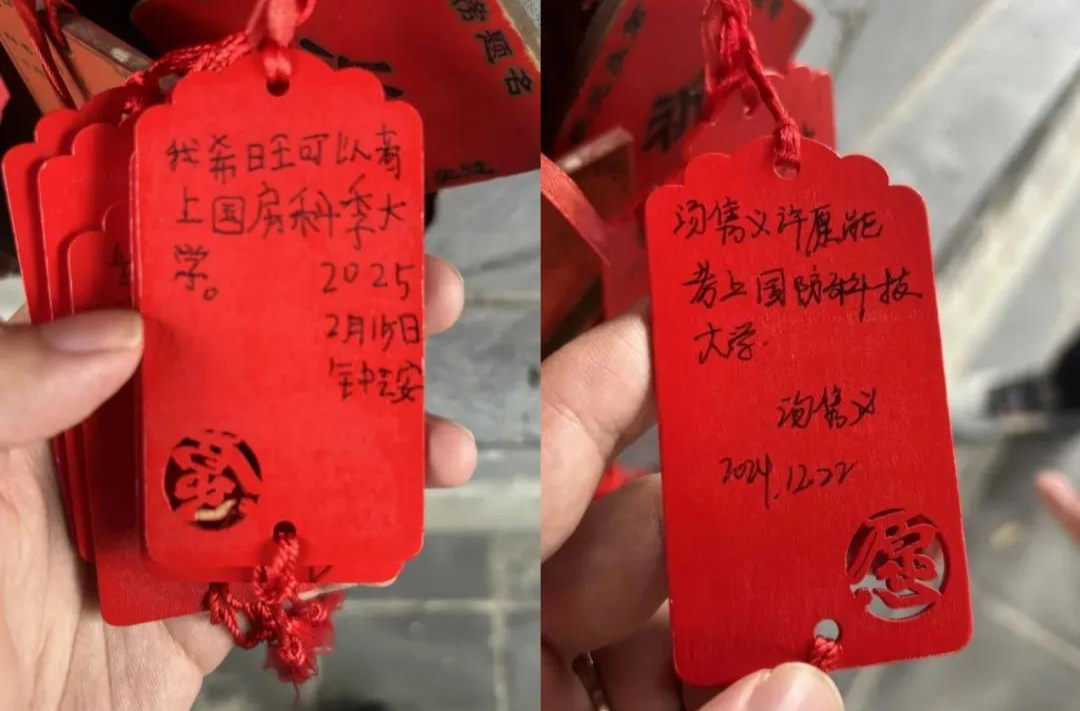 榜题名
我希旺可以考
上国房科季大
学。
2025
2月15日
钟云安
愿
汤隽义许愿能
考上国防科技
大学.
汤隽义
2024.12.22
愿